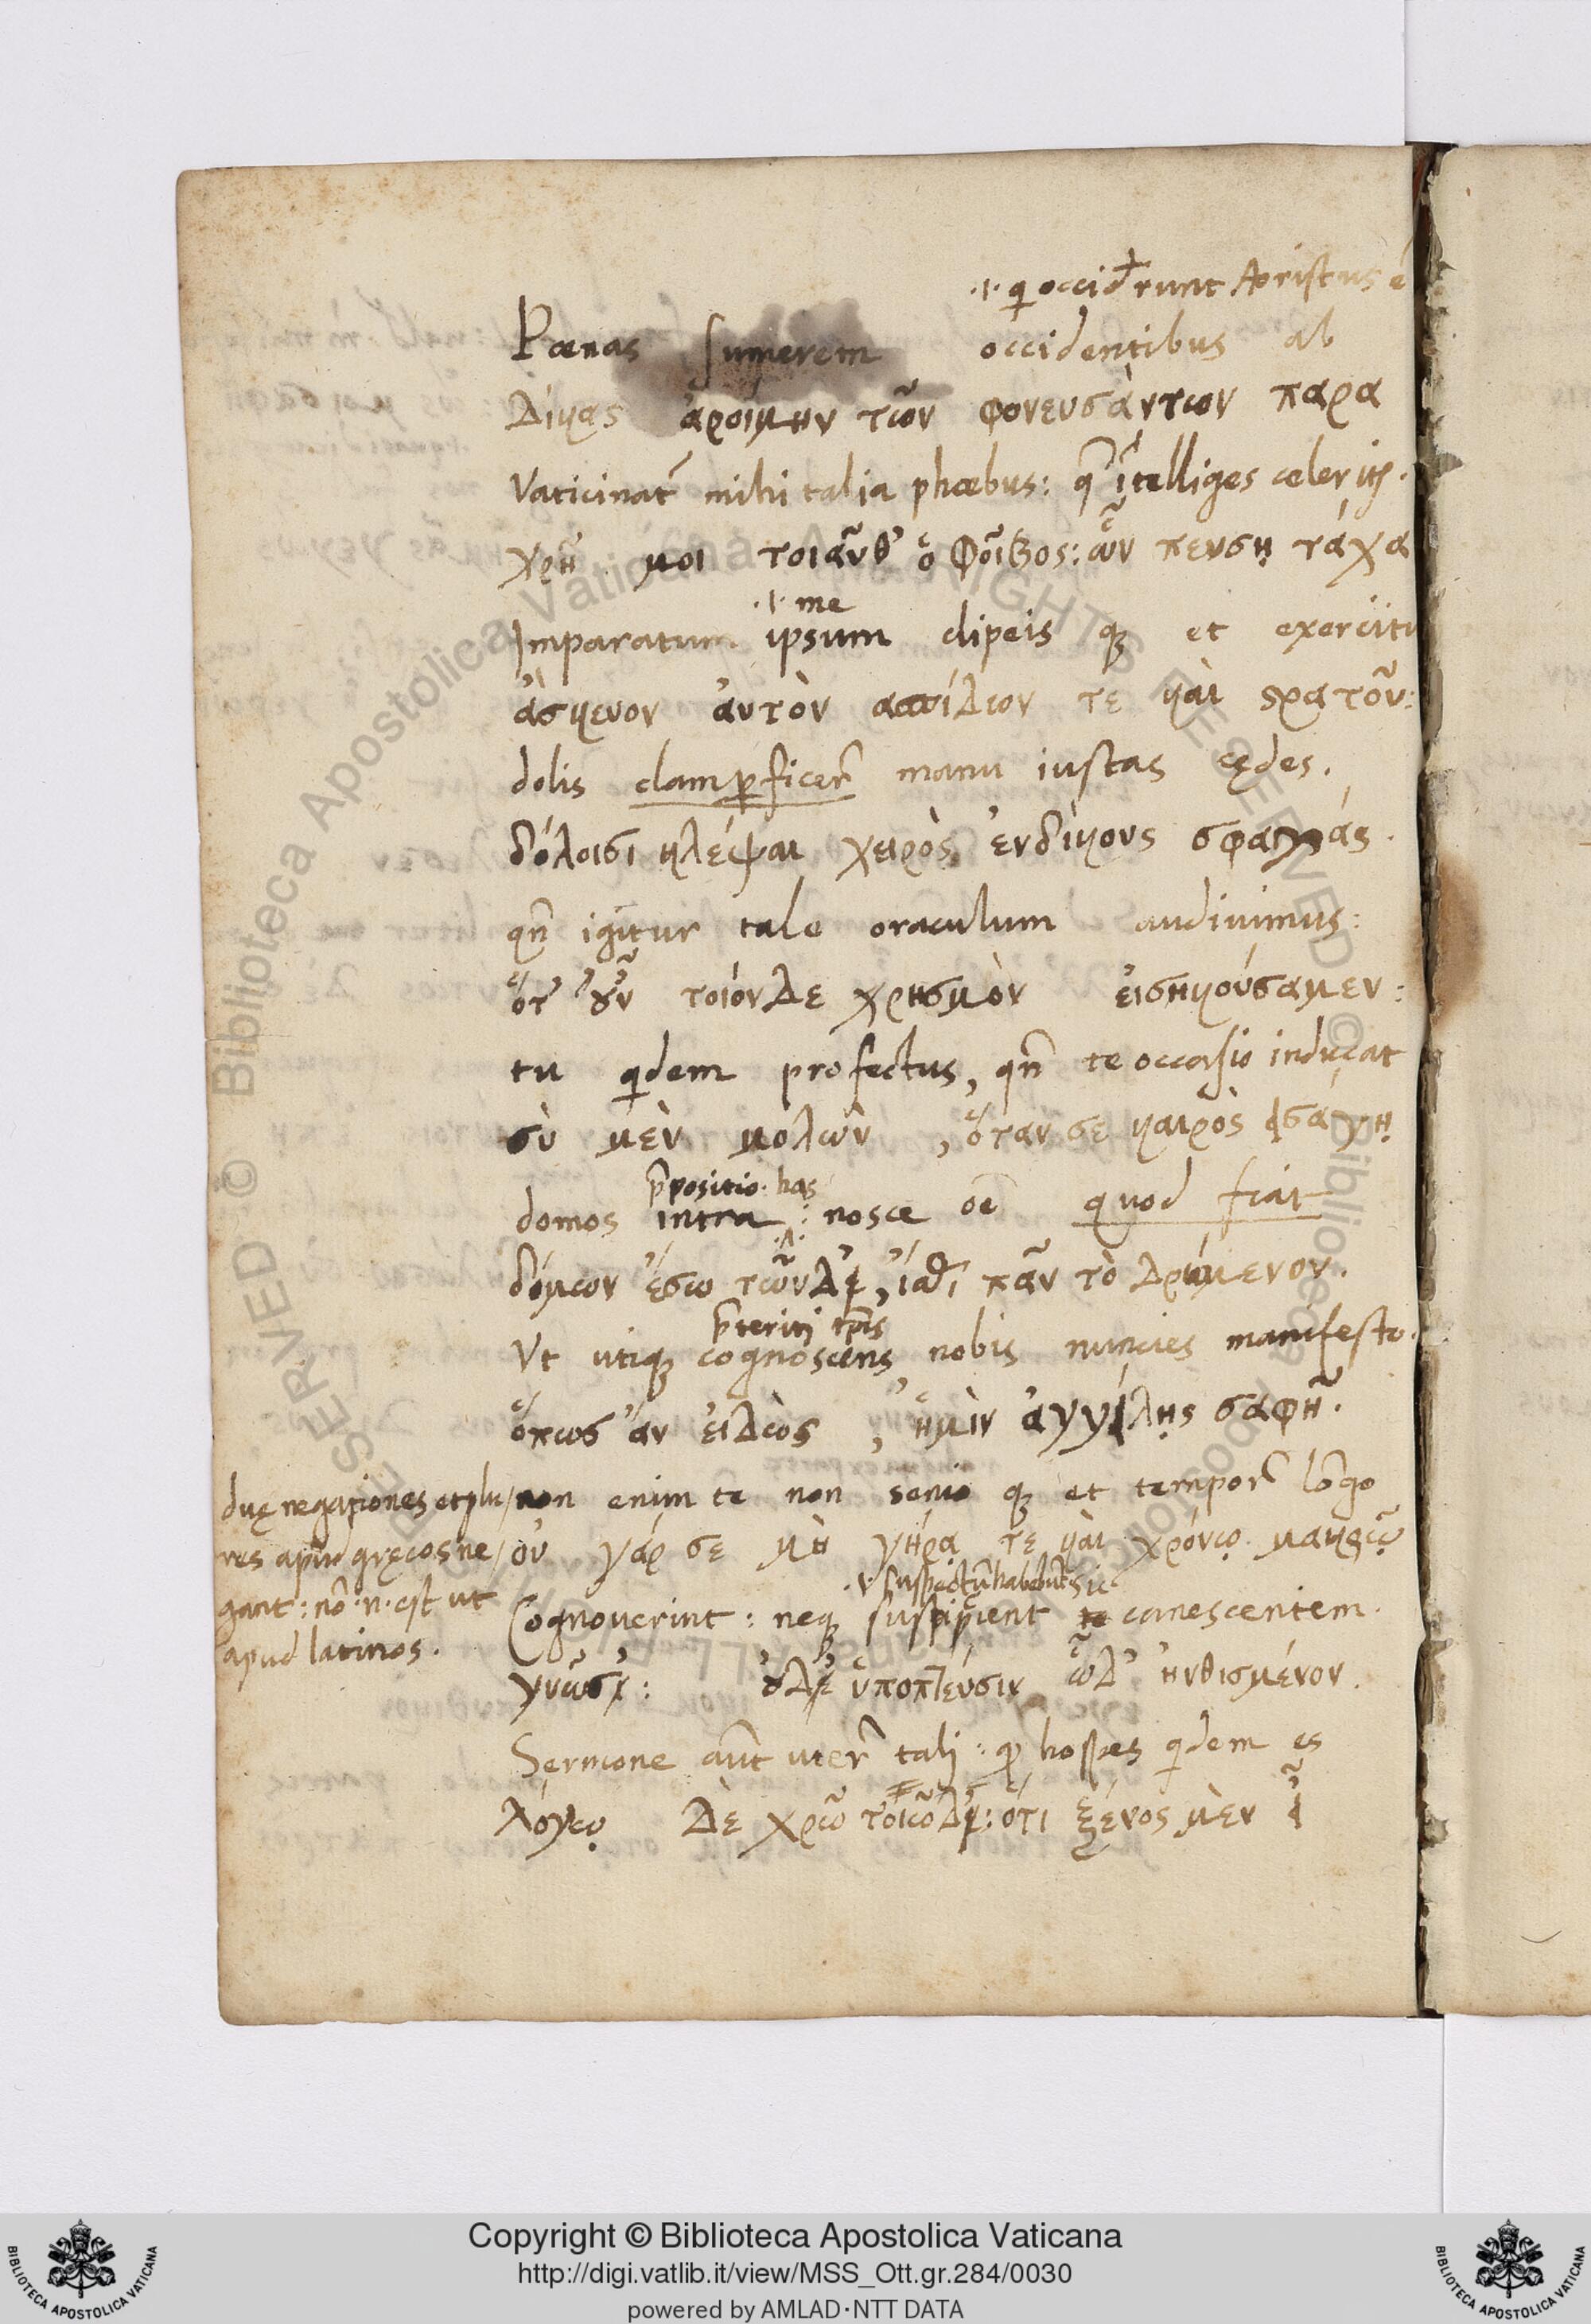 .i. qͥ occiderunt Aoristus ē
Poenas sumerem occidentibus ab
Δίκας ἀροίμην τῶν φονευσάντων παρα
Vaticinat᷑ mihi talia phoebus: q̄ ītelliges celeriꝰ.
χρῆ μοι τοιαῦθ᾽ ὁ Φοῖβος: ὧν πευσῃ τάχα
.i. me
Imparatum ipsum clipeis qꝫ et exercitu
ἄσκευον ἀυτὸν ασπίδων τε κὰι στρατοῦ:
dolis clam ꝑficer̄ manu iustas cędes.
δόλοισι κλέψαι χειρὸς ἐνδίκους σφαγάς.
qn̄ igitur tale oraculum audiuimus:
ὅτ᾽ οὖν τοιόνδε χρησμὸν ἐισηκούσαμεν:
tu qͥdem profectus, qn̄ te occasio inducat
σὺ μὲν μολὼν, ὅταν σε καιρὸς εἰσάγῃ
p̄positio. has
domos intra: nosce oē quod fiat
δόμων ἔσω τῶνδε, ἴσθι πᾶν τὸ δρώμενον.
p̄teriti tp̄is
Vt utiqꝫ cognoscens, nobis nuncies manifesto.
ὅπως ἂν ἐιδὼς, ἡμὶν ἀγγείλῃς σαφῆ.
non enim te non senio qꝫ et tempor̄ lōgo
ὀυ γάρ σε μὴ γήρα τε κὰι χρόνῳ μακρῷ
duę negationes et plu/
res apud gręcos ne/
gant: nō .n. est ut
apud latinos.
.i. suspectū habebūt sic
Cognouerint: neqꝫ suspicient te canescentem.
γνῶσι: οὐδὲ ὑποπτέυσιν ὧδ᾽ ἠνθισμένον.
Sermone aūt uter̄ tali: ꝙ hospes qͥdem es
λόγῳ δὲ χρῶ τοιῶδε: ὅτι ξένος μὲν εἶ
Copyright © Biblioteca Apostolica Vaticana
http://digi.vatlib.it/view/MSS_Ott.gr.284/0030
powered by AMLAD·NTT DATA
BIBLIOTECA APOSTOLICA VATICANA
BIBLIOTECA APOSTOLICA VATICANA